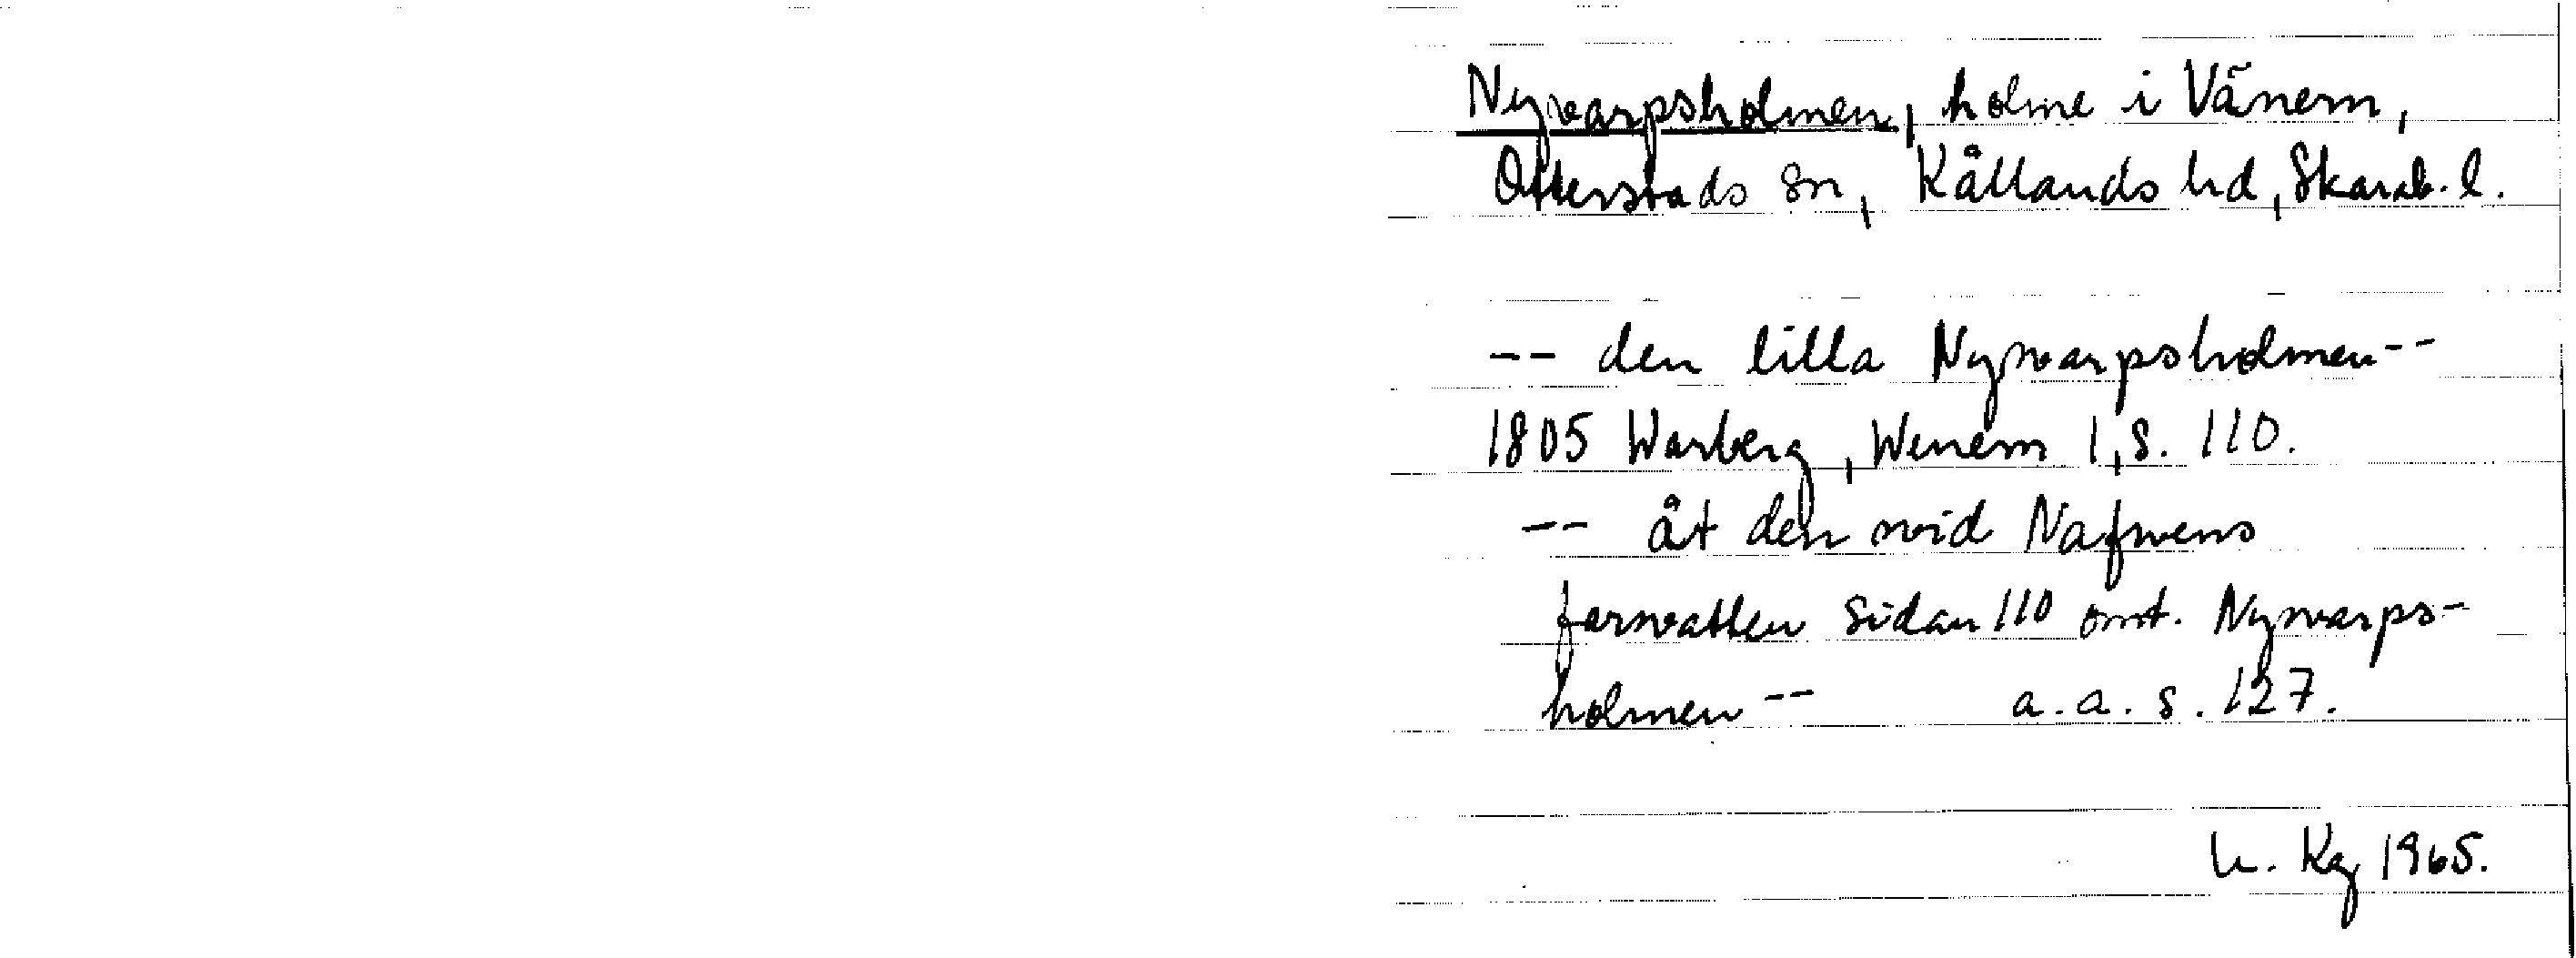 Nyvarpsholmen, holme i Vänern,
Otterstads sn, Kållands hd, Skarab. l.
-- den lilla Nyvarpsholmen --
1805 Warberg, Wenern 1, s. 110.
-- åt den vid Nafvens
farvatten sidan 110 omt. Nyvarps-
holmen -- a. a. s. 127.
U. Kg 1965.